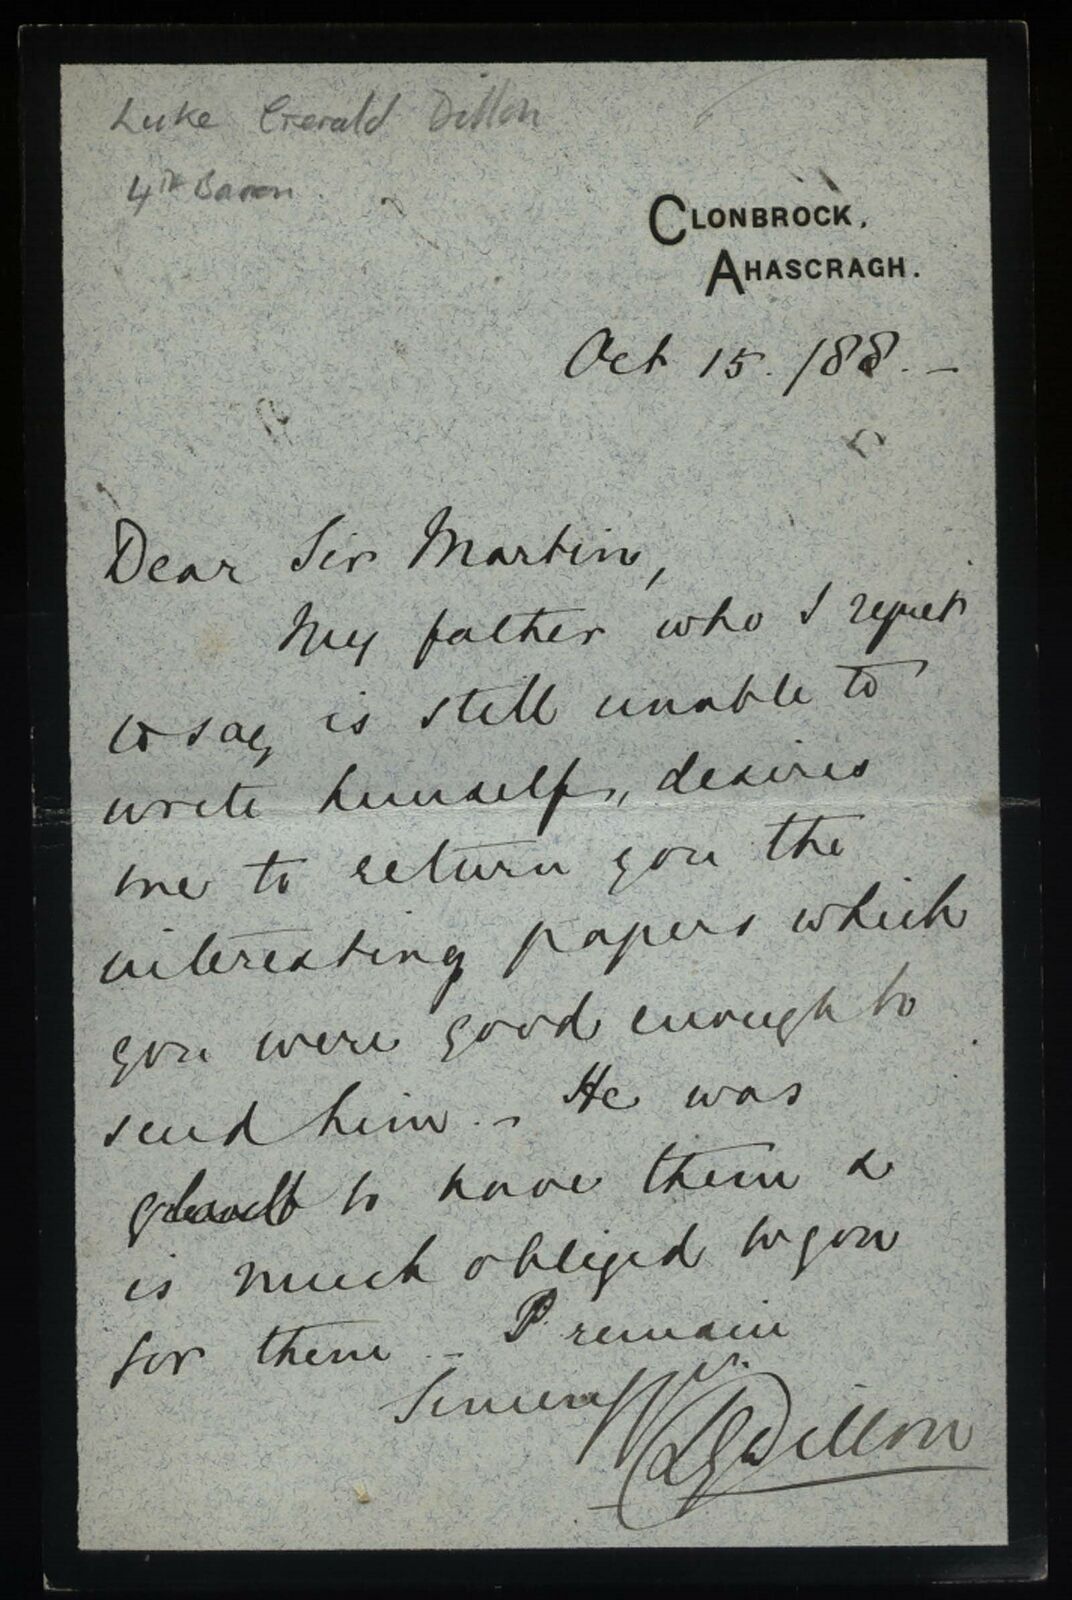 Luke Gerald Dillon
4th Baron.
CLONBROCK,
AHASCRAGH.
Oct 15. /88. -
Dear Sir Martin,
My father who I regret
to say is still unable to
write himself, desires
me to return you the
interesting papers which
you were good enough to
send him. - He was
glad to have them &
is much obliged to you
for them - I remain
Sincerely
LG Dillon